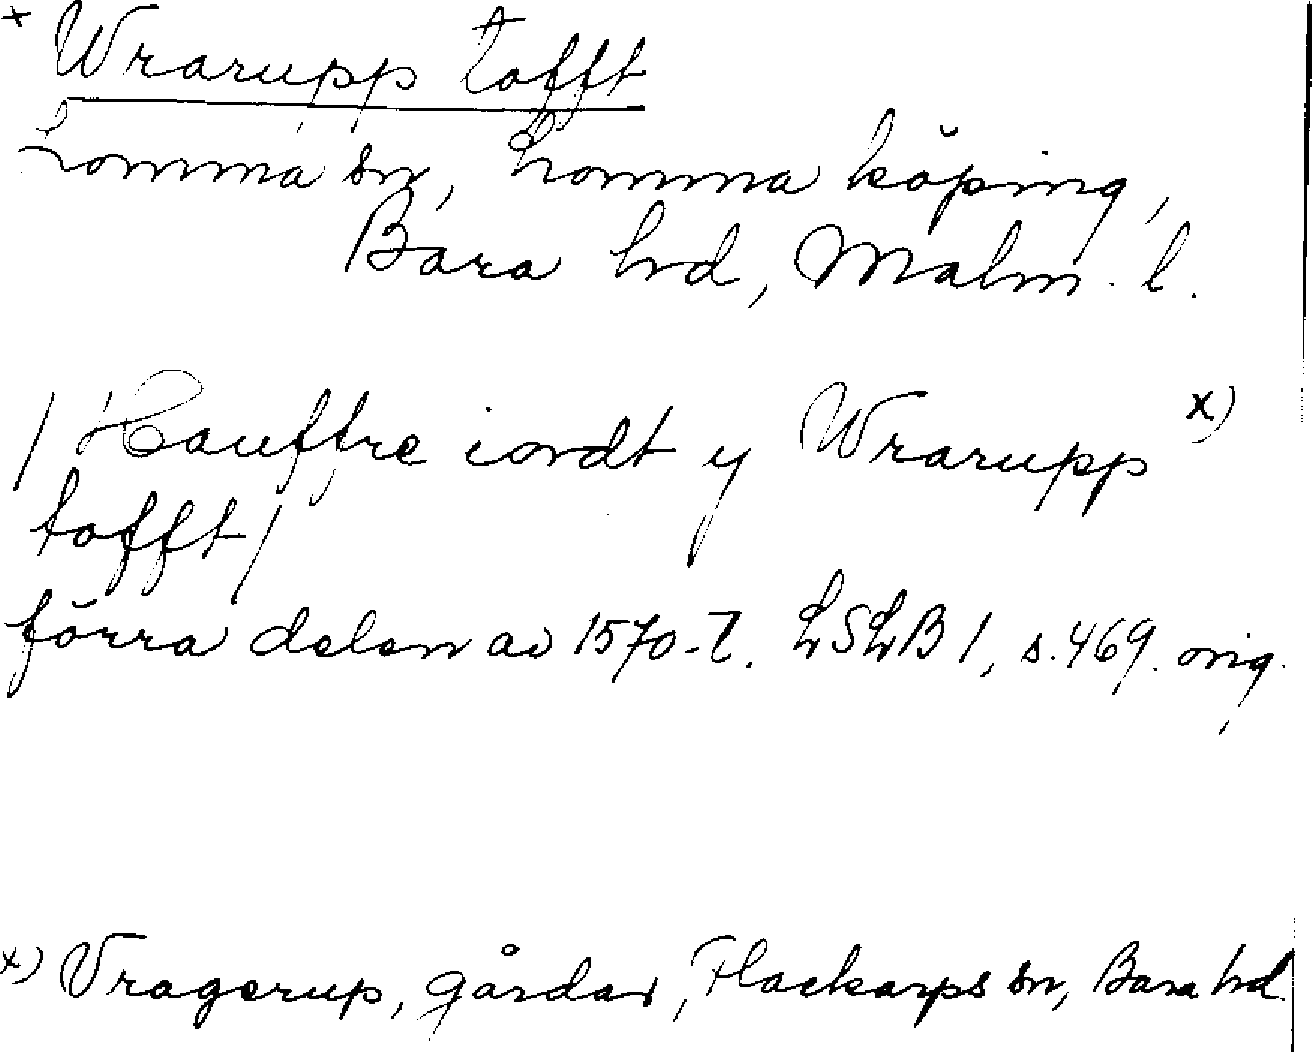 + Wrarupp tofft
Lomma sn, Lomma köping,
Bara hd, Malm. l.
/ Hauffre iordt y Wrarupp x)
tofft /
förra delen av 1570-t. LSLB 1, s. 469. orig.
x) Vragerup, gårdar, Flackarps sn, Bara hd.